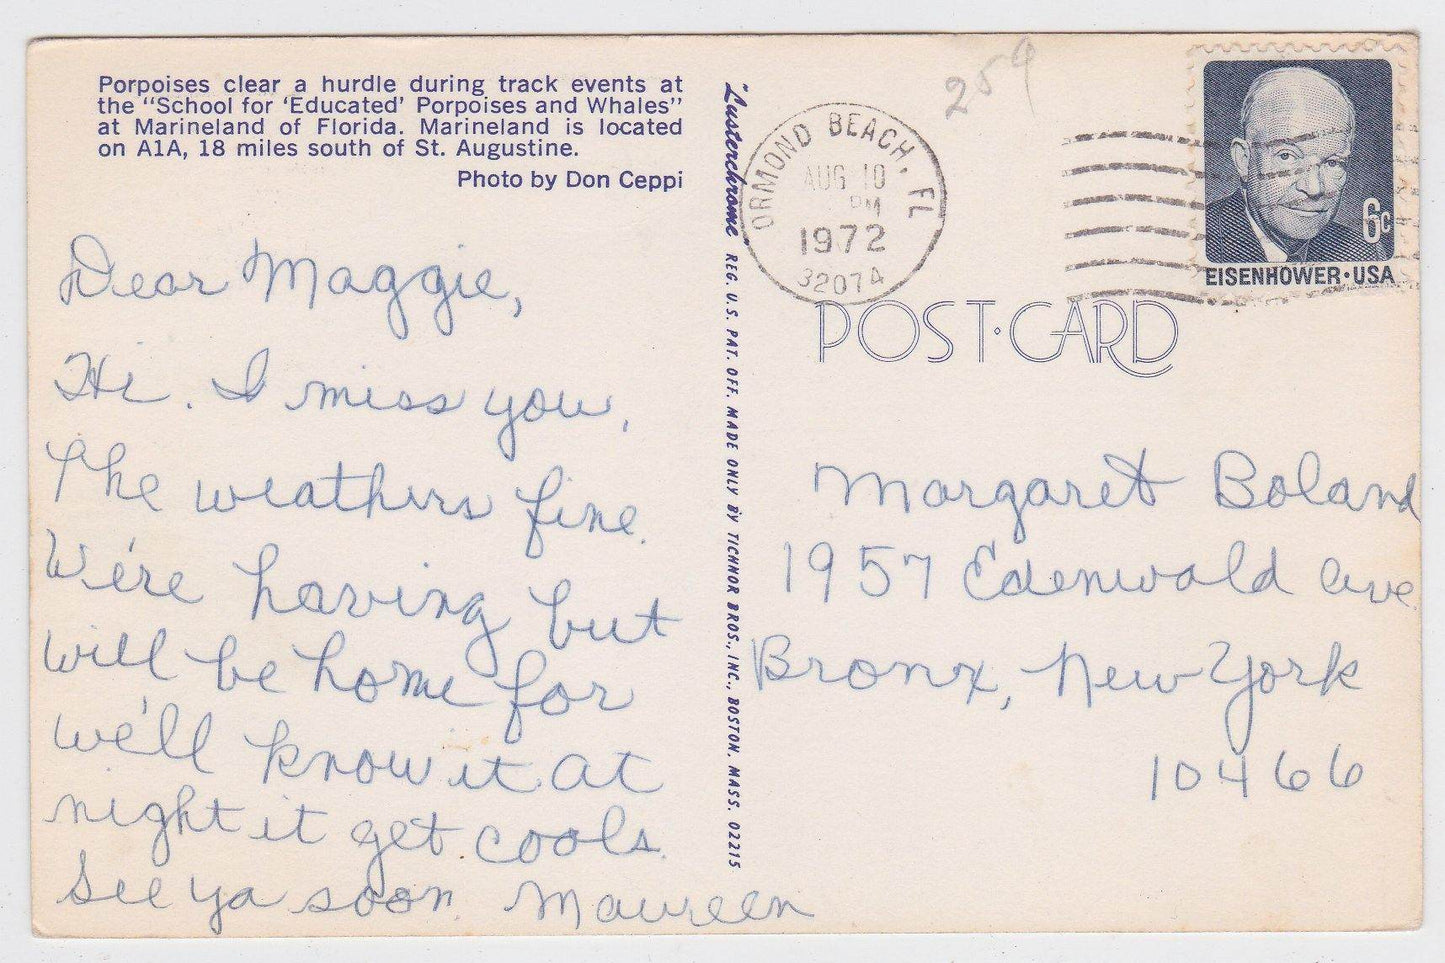 Porpoises clear a hurdle during track events at
the "School for 'Educated' Porpoises and Whales"
at Marineland of Florida. Marineland is located
on A1A, 18 miles south of St. Augustine.
Photo by Don Ceppi
Dear Maggie,
Hi. I miss you,
The weathers fine.
We're having but
will be home for
we'll know it at
night it get cools.
See ya soon. Maureen
"Lusterchrome" REG. U.S. PAT. OFF. MADE ONLY BY TICHNOR BROS., INC., BOSTON, MASS. 02215
259
ORMOND BEACH, FL
AUG 10
PM
1972
32074
6c
EISENHOWER·USA
POST·CARD
Margaret Boland
1957 Edenwald Ave.
Bronx, New York
10466